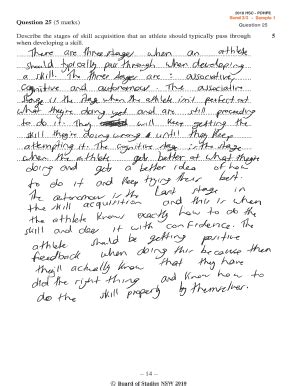 2010 HSC - PDHPE
Band 2/3 - Sample 1
Question 25
Question 25 (5 marks)
Describe the stages of skill acquisition that an athlete should typically pass through 5
when developing a skill.
There are three stages when an athlete
should typically pass through when developing
a skill. The three stages are: associative,
cognitive and autonomow. The associative
stage is the stage when the athlete isn't perfect at
what they're doing yet and are still proceeding
to do it. They keep getting the
skill they're doing wrong until they keep
attempting it. The cognitive stage is the stage
when the athlete gets better at what they're
doing and gets a better idea of how
to do it and keep trying their best.
The autonomow is the last stage in
the skill acquisition and this is when
the athlete know exactly how to do the
skill and does it with confidence. The
athlete should be getting positive
feedback when doing this because then
they'll actually know that they have
did the right thing and know how to
do the skill properly by themselves.
– 14 –
© Board of Studies NSW 2010